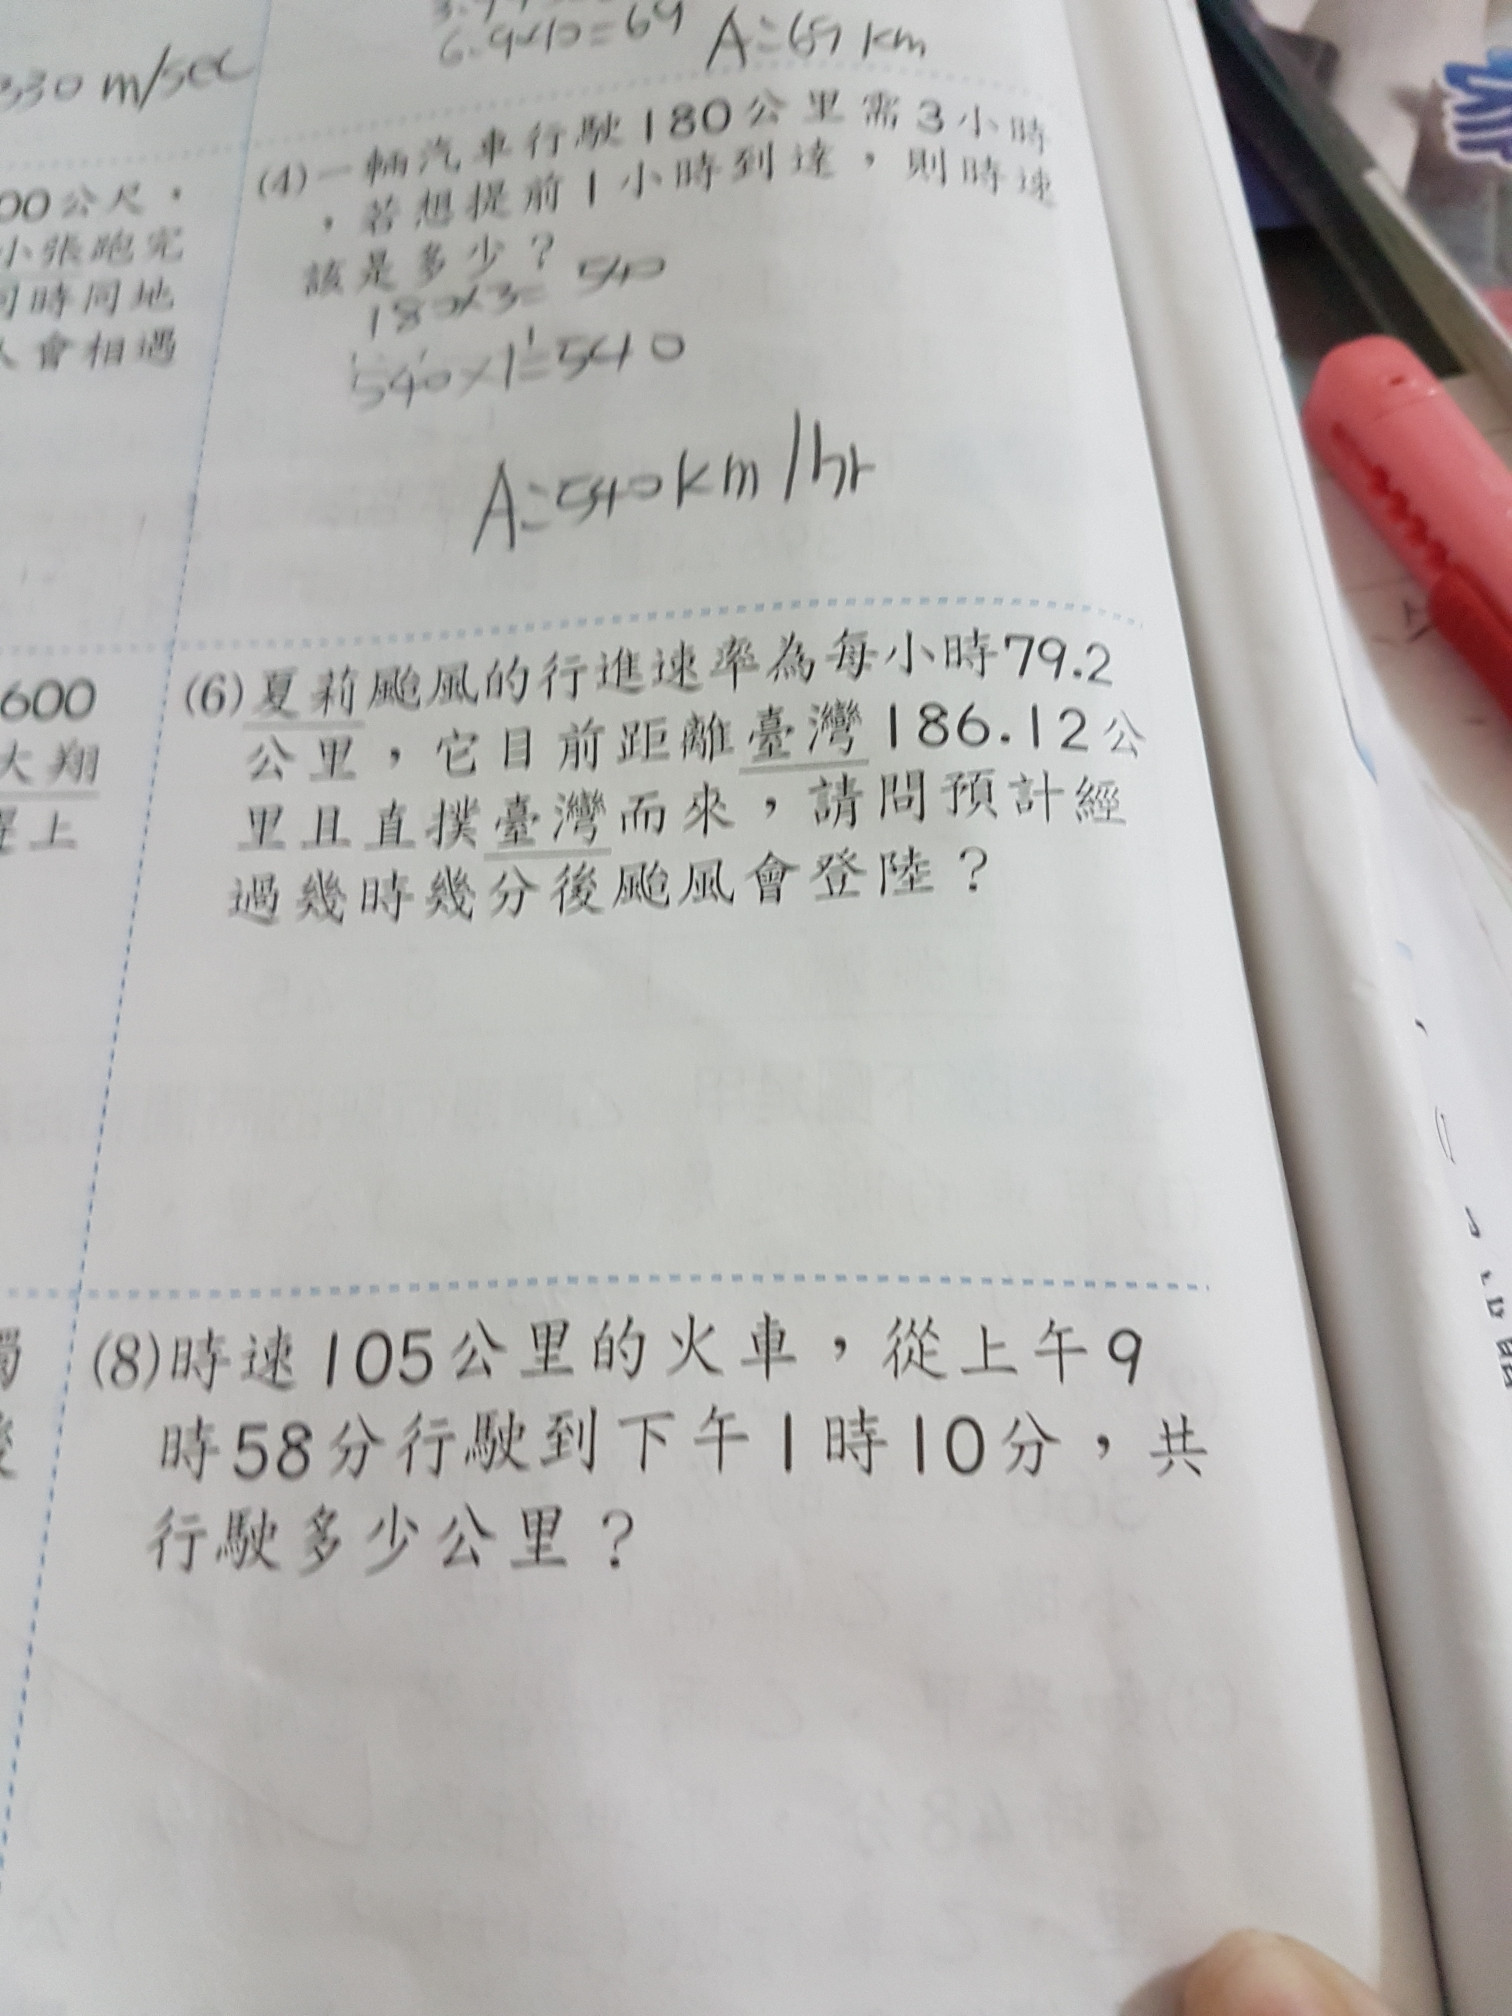 6.9×10=69
A=69 km
330 m/sec
(4)一輛汽車行駛180公里需3小時
，若想提前1小時到達，則時速
該是多少？
180×3=540
540×1=540
A=540km/hr
00公尺，
小張跑完
同時同地
人會相遇
600
大翔
上
(6)夏莉颱風的行進速率為每小時79.2
公里，它目前距離臺灣186.12公
里且直撲臺灣而來，請問預計經
過幾時幾分後颱風會登陸？
(8)時速105公里的火車，從上午9
時58分行駛到下午1時10分，共
行駛多少公里？